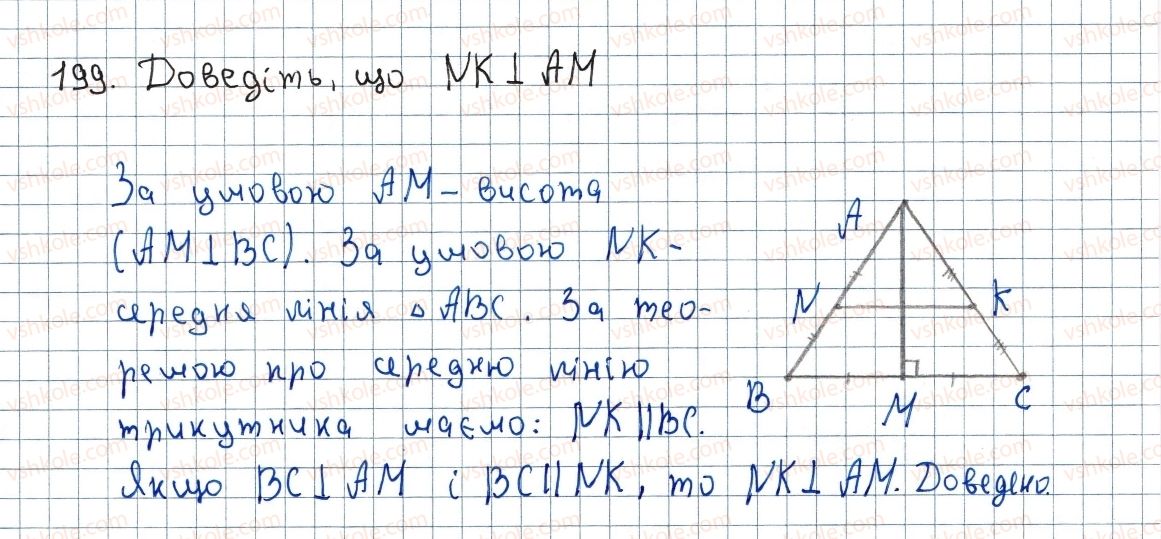 199. Доведіть, що NK⊥AM
За умовою AM – висота
(AM⊥BC). За умовою NK –
середня лінія △ABC. За тео-
ремою про середню лінію
трикутника маємо: NK||BC.
Якщо BC⊥AM і BC||NK, то NK⊥AM. Доведено.
A
N
K
B
M
C
vshkole.com